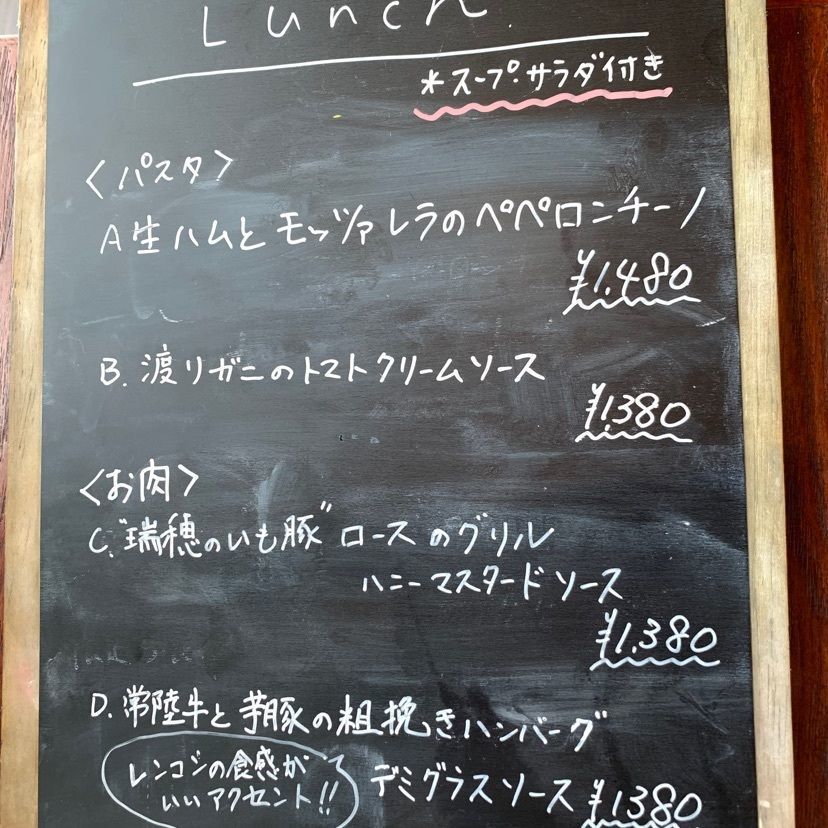 Lunch.
*スープ・サラダ付き
<パスタ>
A生ハムとモッツァレラのペペロンチーノ
¥1,480
B. 渡リガニのトマトクリームソース
¥1,380
<お肉>
C. "瑞穂のいも豚" ロースのグリル
ハニーマスタードソース
¥1,380
D. 常陸牛と芋豚の粗挽きハンバーグ
レンコンの食感が
いいアクセント!!
デミグラスソース ¥1380